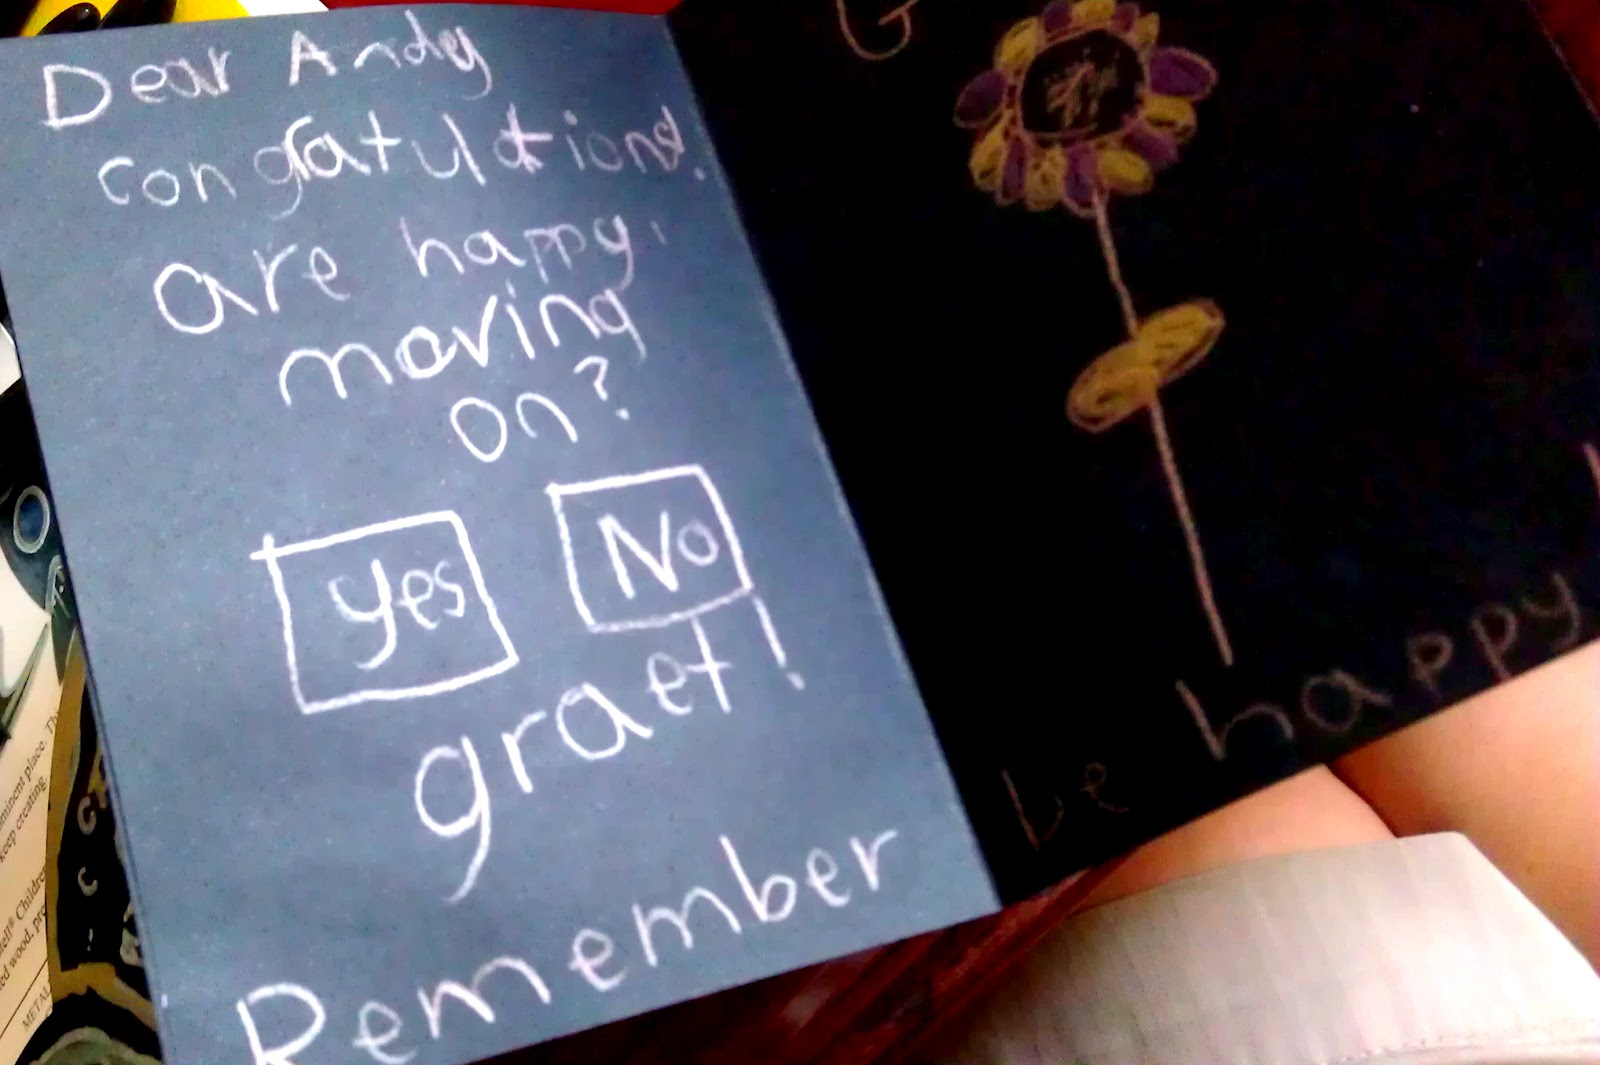 Dear Andy
congratulations.
are happy,
moving
on?
Yes No
graet!
Remember
G
be happy
minent place. Th
keep creating.
Children
ed wood, pro
METAL